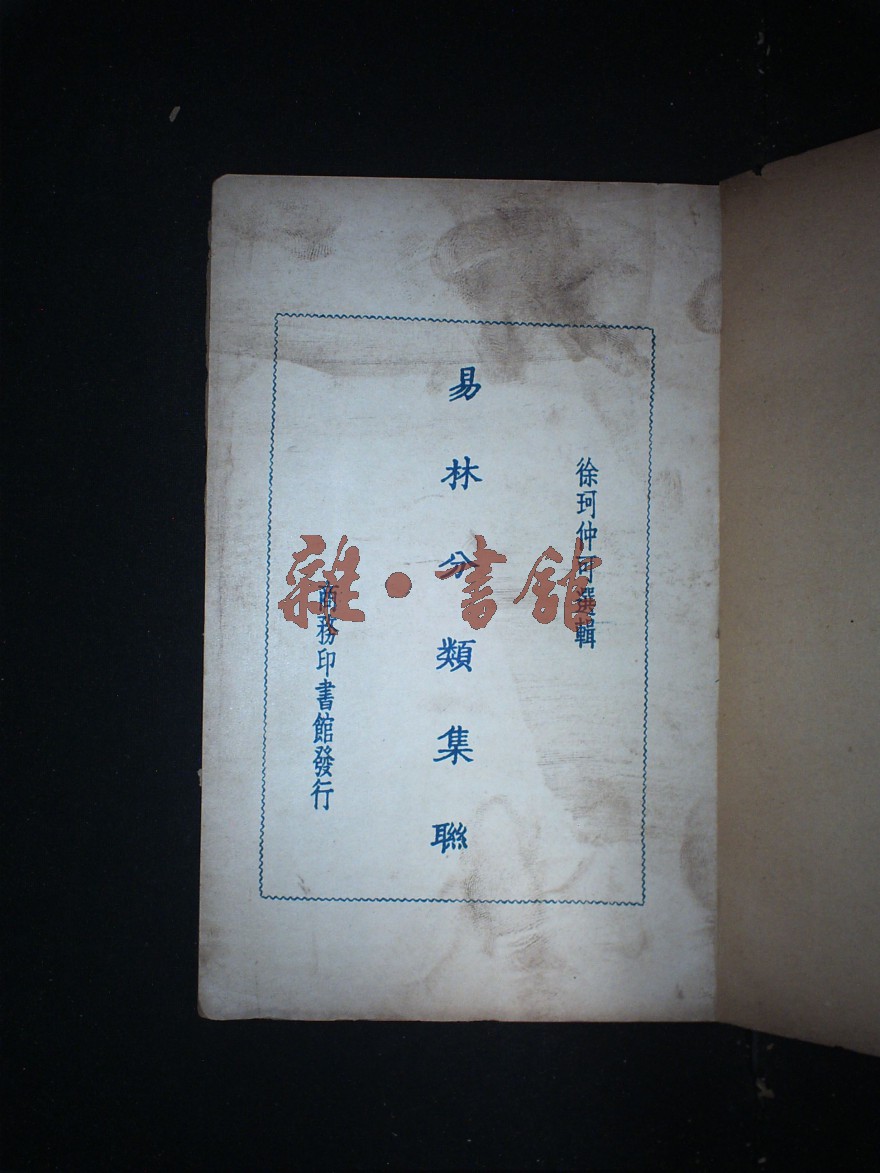 徐珂仲可選輯
易林分類集聯
商務印書館發行
雜·書館